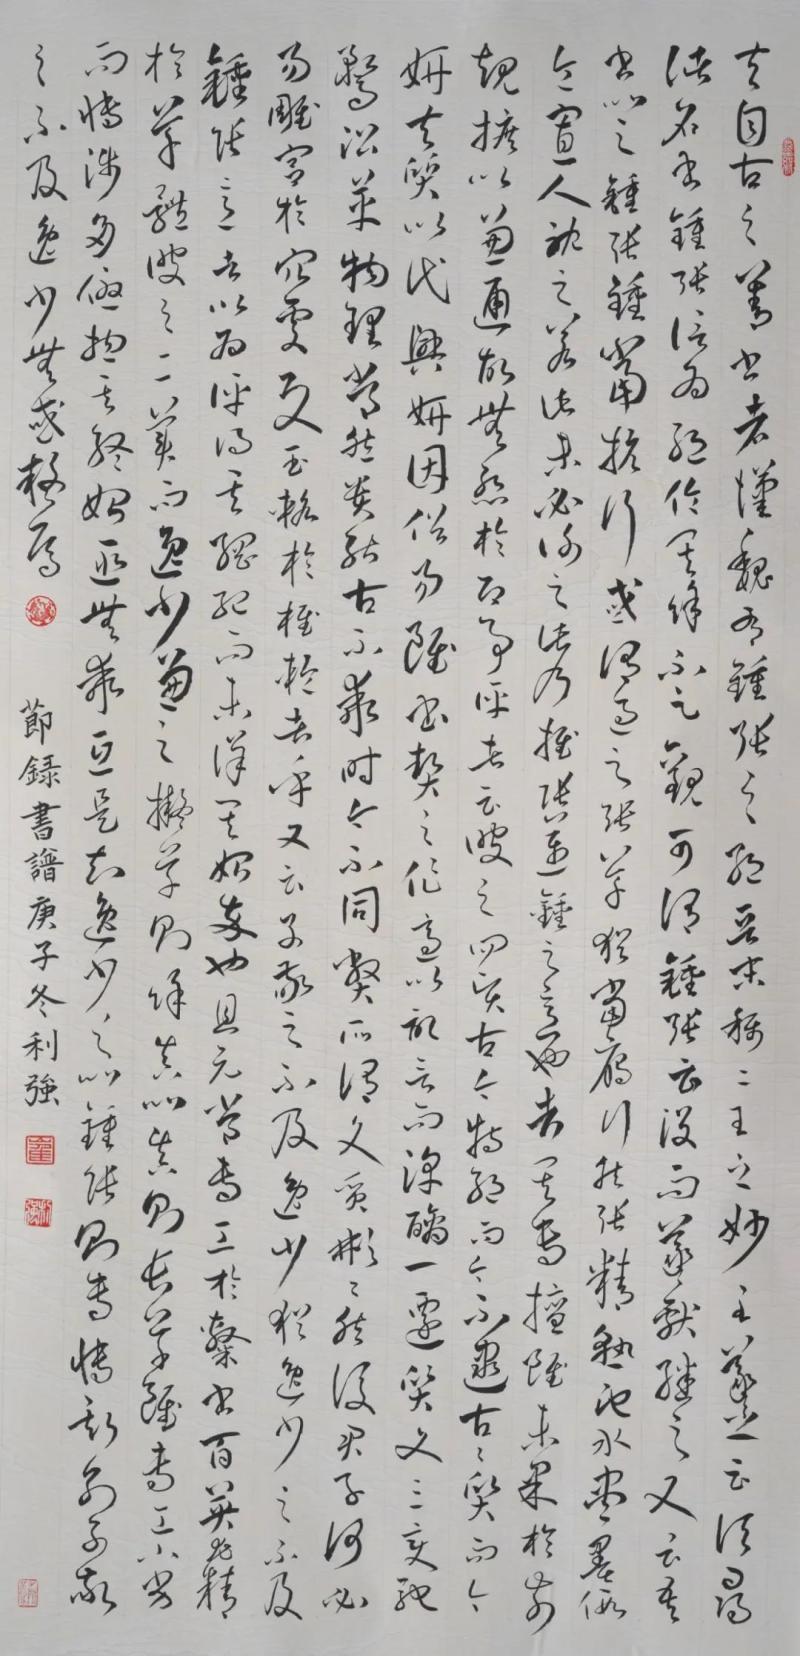 夫自古之善書者漢魏有鍾張之絕晉末稱二王之妙王羲之云頃尋
諸名書鍾張信為絕倫其餘不足觀可謂鍾張云沒而羲獻繼之又云吾
書比之鍾張鍾當抗行或謂過之張草猶當雁行然張精熟池水盡墨假
令寡人耽之若此未必謝之此乃推張邁鍾之意也考其專擅雖未果於前
規摭以兼通故無慚於即事評者云彼之四賢古今特絕而今不逮古古質而今
妍夫質以代興妍因俗易雖書契之作適以記言而淳醨一遷質文三變馳
鶩沿革物理常然貴能古不乖時今不同弊所謂文質彬彬然後君子何必
易雕宮於穴處反玉輅於椎輪者乎又云子敬之不及逸少猶逸少之不及
鍾張意者以為評得其綱紀而未詳其始卒也且元常專工於隸書百英尤精
於草體彼之二美而逸少兼之擬草則餘真比真則長草雖專工小劣
而博涉多優總其終始匪無乖互是知逸少之比鍾張則專博斯別子敬
之不及逸少無或疑焉
節錄書譜庚子冬利強